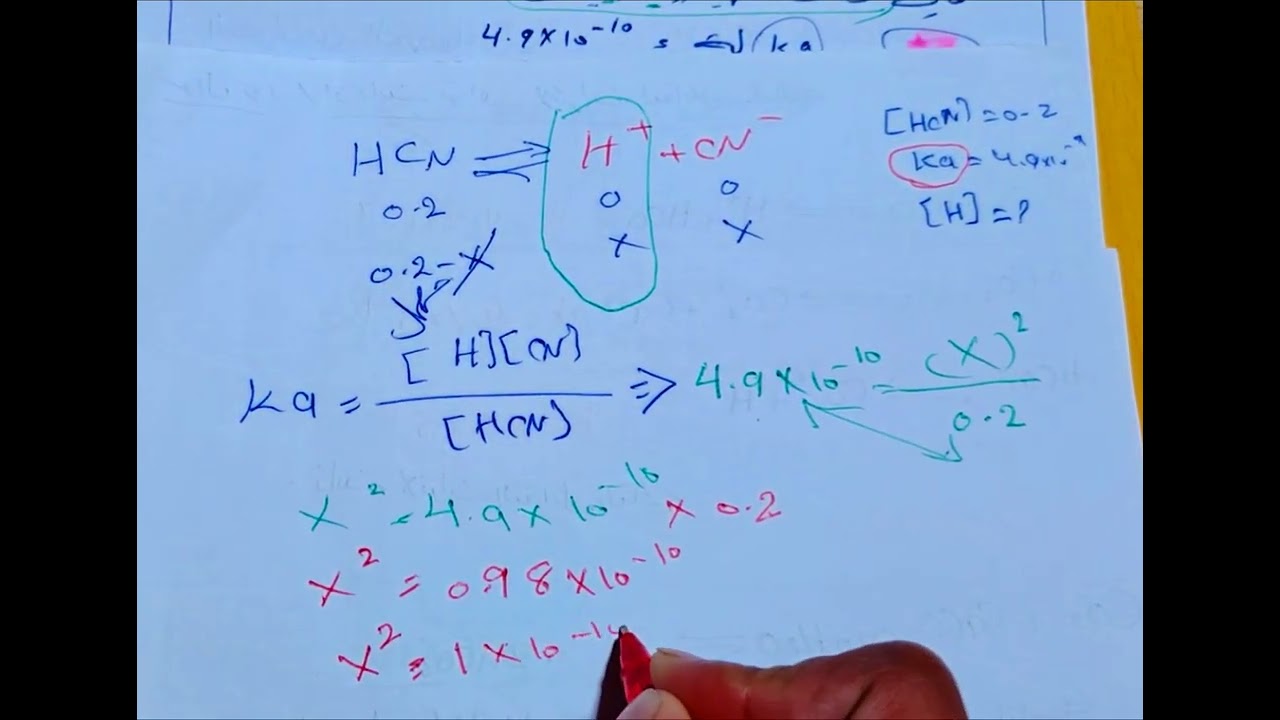 4.9×10⁻¹⁰ s ka
HCN ⇌ H⁺ + CN⁻
[HCN] = 0.2
0.2 0 0
ka = 4.9×10⁻
[H] = ?
0.2-X X X
ka = [H][CN] / [HCN] ⇒ 4.9×10⁻¹⁰ = (X)² / 0.2
X² = 4.9×10⁻¹⁰ × 0.2
X² = 0.98×10⁻¹⁰
X² = 1×10⁻¹